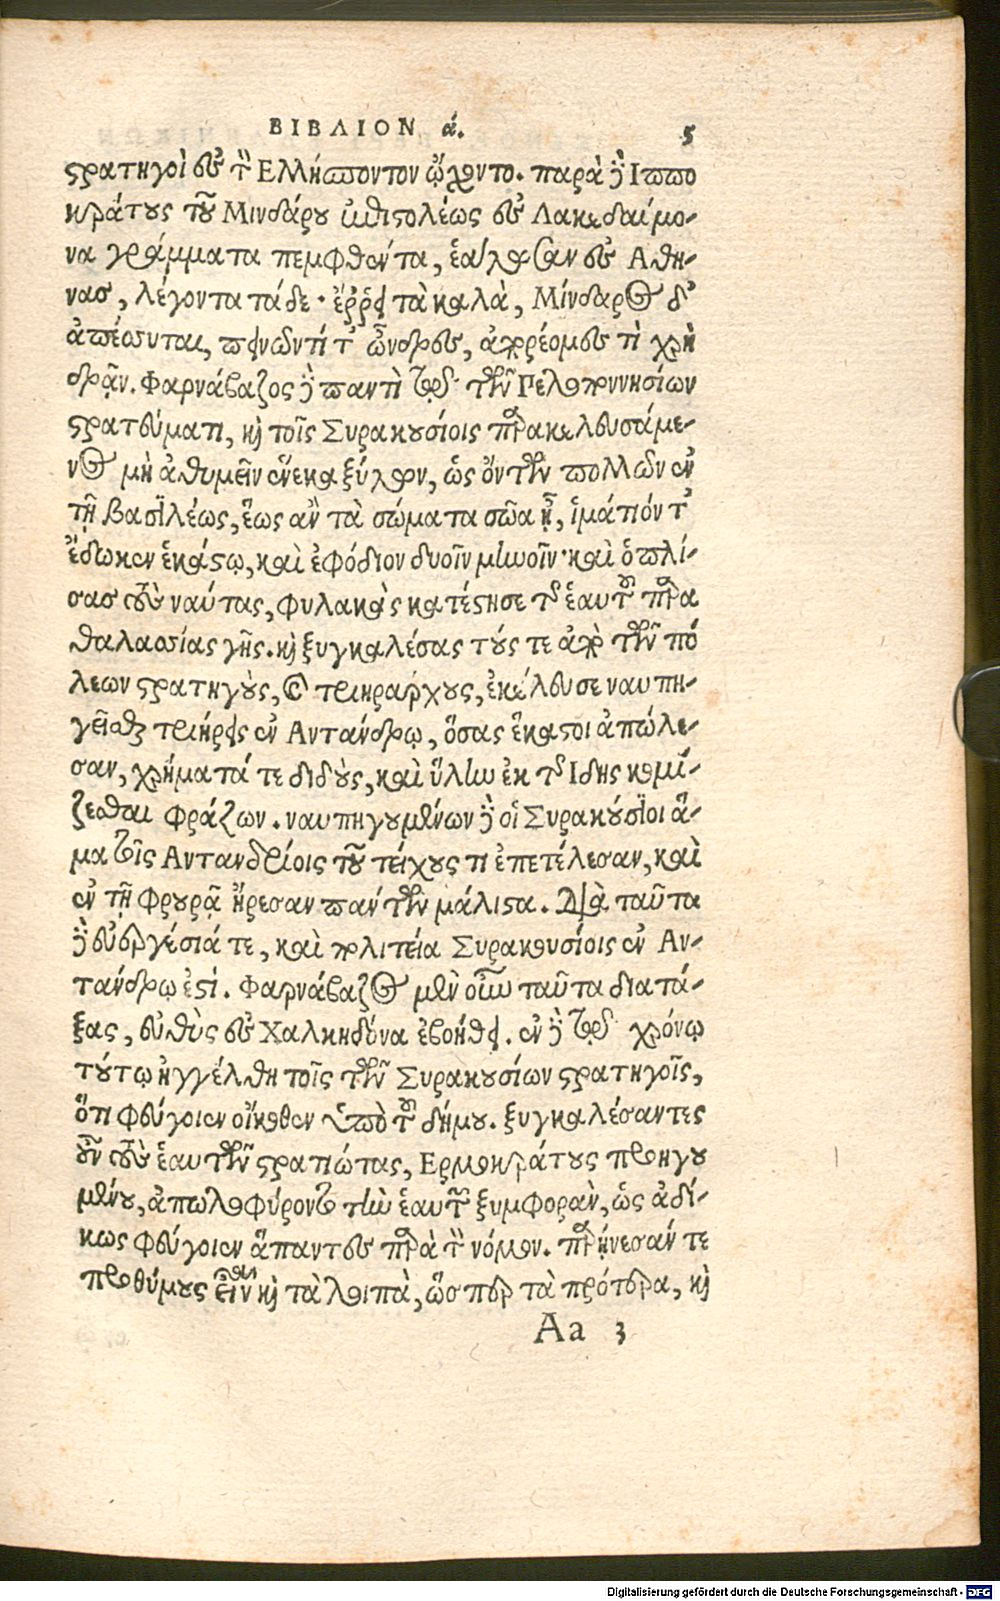 ΒΙΒΛΙΟΝ ά. 5
στρατηγοὶ εἰς τὸν Ἑλλήσποντον ᾤχοντο. παρὰ δὲ Ιππο
κράτους τοῦ Μινδάρου ἐπιστολέως εἰς Λακεδαίμο-
να γράμματα πεμφθέντα, ἑάλωσαν εἰς Αθή-
νας, λέγοντα τάδε· ἔρρει τὰ καλὰ, Μίνδαρος δ'
ἀπέσυται, πεινῶντι τ' ὦνδρες, ἀπορέομες τὶ χρὴ
δρᾷν. Φαρνάβαζος δὲ παντὶ τῷ τῶν Πελοποννησίων
στρατεύματι, καὶ τοῖς Συρακουσίοις παρακελευσάμε-
νος μὴ ἀθυμεῖν ἕνεκα ξύλων, ὡς ὄντων πολλῶν ἐν
τῇ βασιλέως, ἕως ἂν τὰ σώματα σῶα ᾖ, ἱμάτιόν τ'
ἔδωκεν ἑκάστῳ, καὶ ἐφόδιον δυοῖν μηνοῖν· καὶ ὁπλί-
σας τοὺς ναύτας, φυλακὰς κατέστησε τῆς ἑαυτοῦ παρα
θαλασσίας γῆς. καὶ ξυγκαλέσας τούς τε ἀπὸ τῶν πό
λεων στρατηγοὺς, καὶ τριηράρχους, ἐκέλευσε ναυπη-
γεῖσθαι τριήρεις ἐν Αντάνδρῳ, ὅσας ἕκαστοι ἀπώλε-
σαν, χρήματά τε διδοὺς, καὶ ὕλην ἐκ τῆς Ιδης κομί-
ζεσθαι φράζων. ναυπηγουμένων δὲ οἱ Συρακούσιοι ἅ-
μα τοῖς Αντανδρίοις τοῦ τείχους τι ἐπετέλεσαν, καὶ
ἐν τῇ φρουρᾷ ἤρεσαν πάντων μάλιστα. Διὰ ταῦτα
δὲ εὐεργεσιά τε, καὶ πολιτεία Συρακουσίοις ἐν Αν-
τάνδρῳ ἐστί. Φαρνάβαζος μὲν οὖν ταῦτα διατά-
ξας, εὐθὺς εἰς Χαλκηδόνα ἐβοήθει. ἐν δὲ τῷ χρόνῳ
τούτῳ ἠγγέλθη τοῖς τῶν Συρακουσίων στρατηγοῖς,
ὅτι φεύγοιεν οἴκοθεν ὑπὸ τοῦ δήμου. ξυγκαλέσαντες
οὖν τοὺς ἑαυτῶν στρατιώτας, Ερμοκράτους προηγου
μένου, ἀπωλοφύροντο τὴν ἑαυτῶν ξυμφορὰν, ὡς ἀδί-
κως φεύγοιεν ἅπαντες παρὰ τὸν νόμον. παρῄνεσάν τε
προθύμους εἶναι καὶ τὰ λοιπὰ, ὥσπερ τὰ πρότερα, καὶ
Aa 3
Digitalisierung gefördert durch die Deutsche Forschungsgemeinschaft - DFG